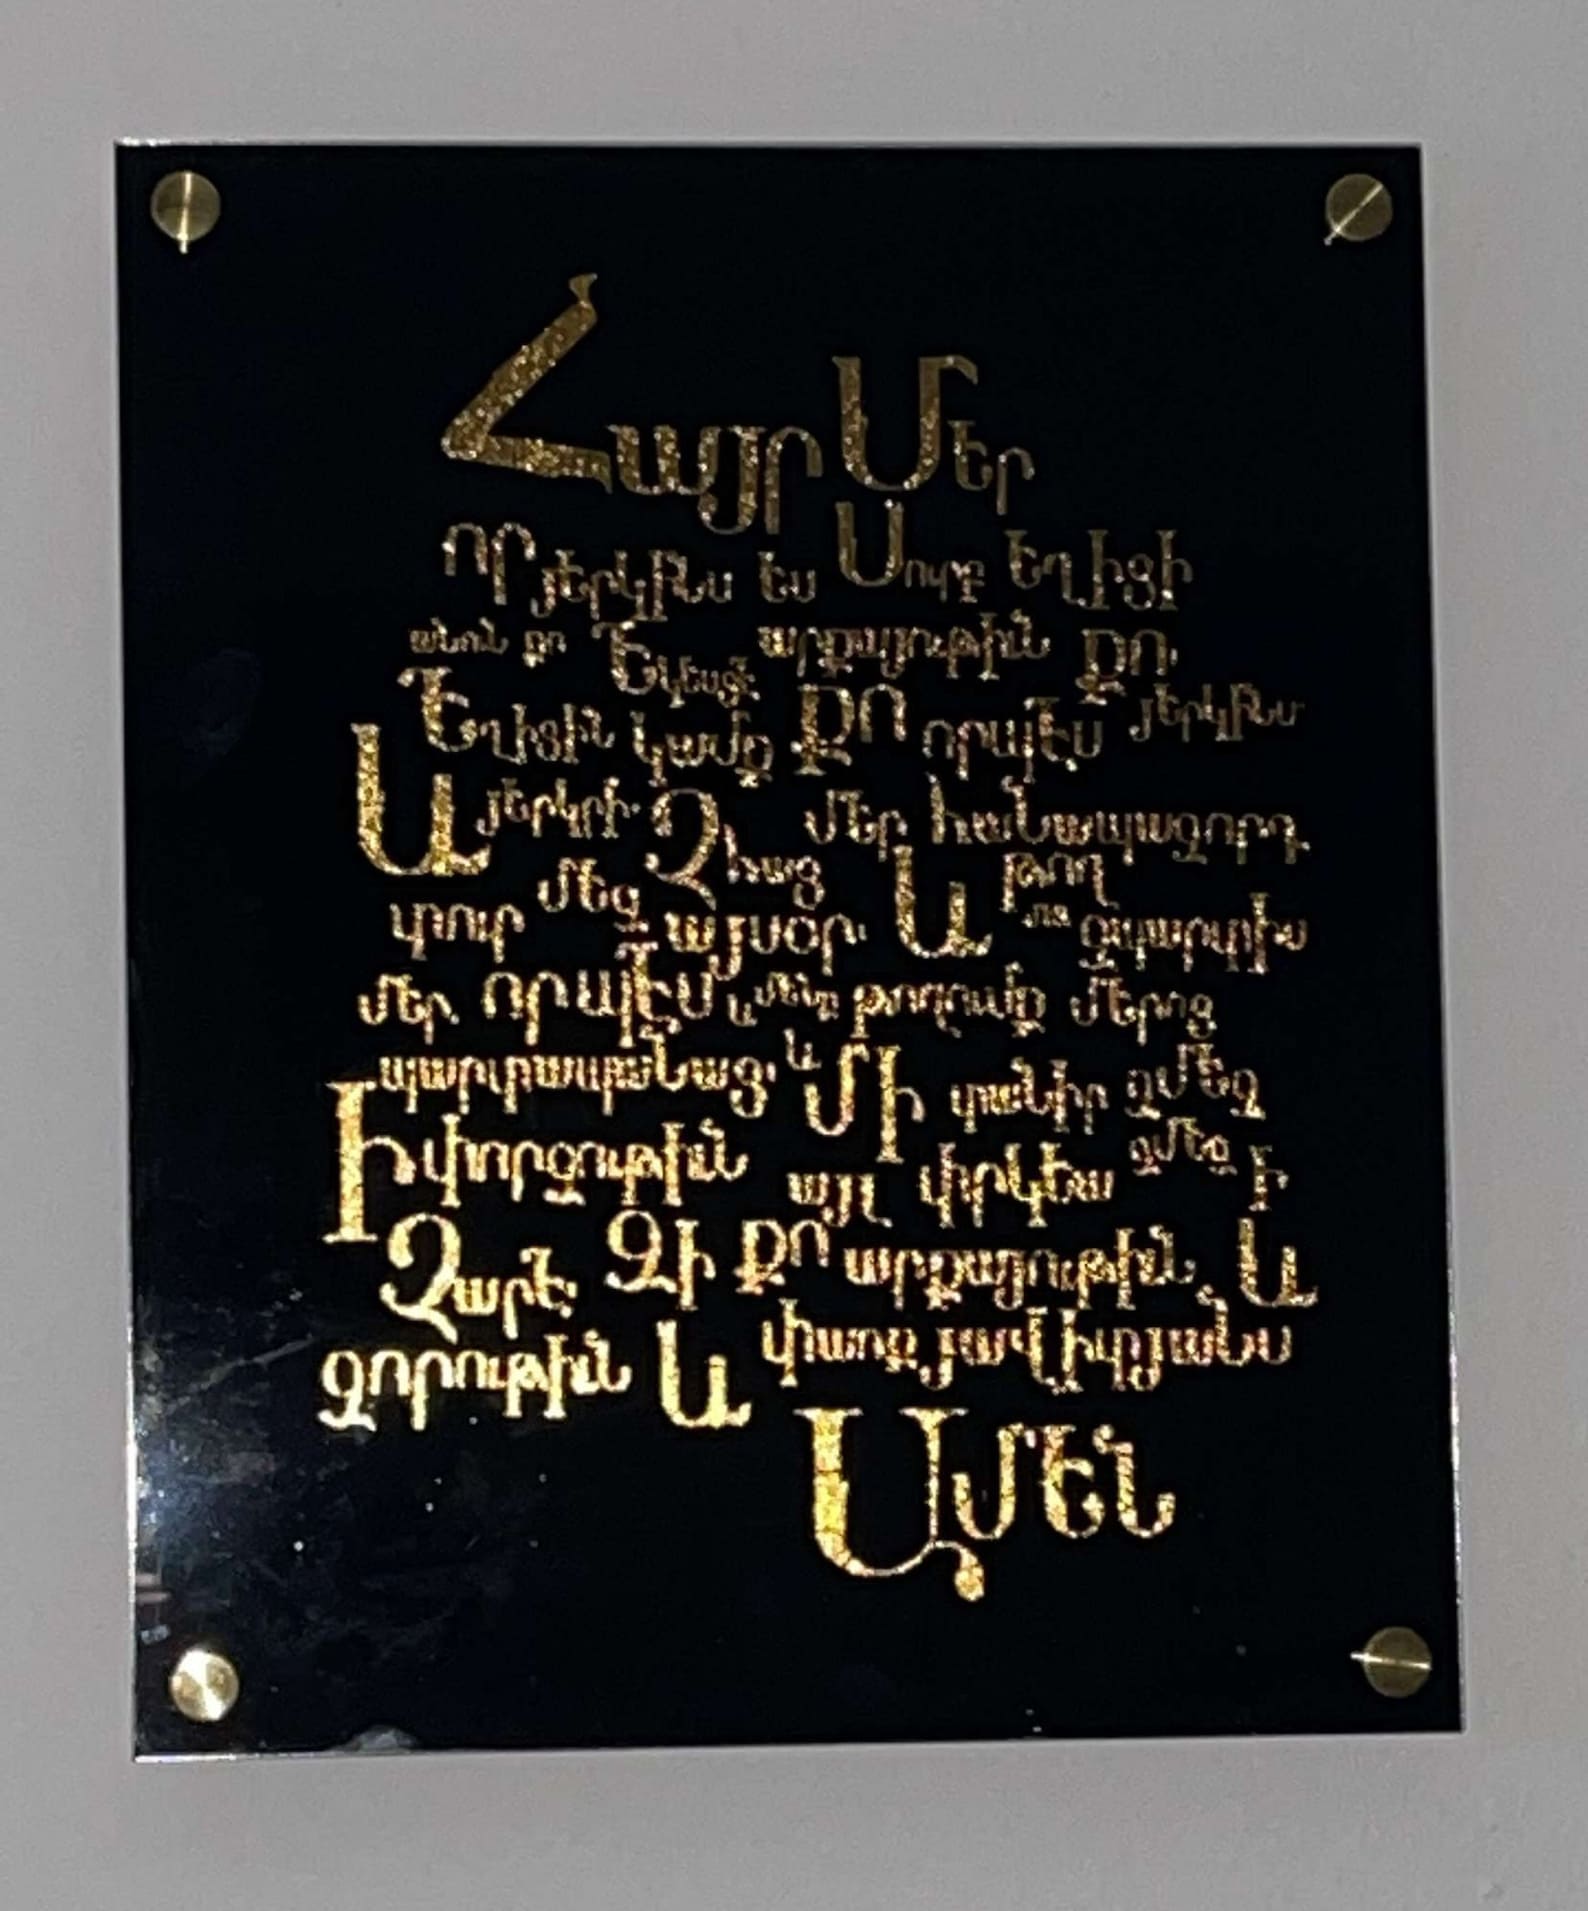 Հայր Մեր
որ յերկինս ես Սուրբ եղիցի
անուն քո Եկեսցէ արքայութիւն քո.
Եղիցին կամք քո որպէս յերկինս
և յերկրի. Զհաց մեր հանապազորդ
տուր մեզ այսօր. և թող մեզ զպարտիս
մեր, որպէս և մենք թողումք մերոց
պարտապանաց. և մի տանիր զմեզ
Ի փորձութիւն այլ փրկեա զմեզ ի
Չարէ. Զի քո արքայութիւն և
զօրութիւն և փառք յաւիտյանս
Ամեն